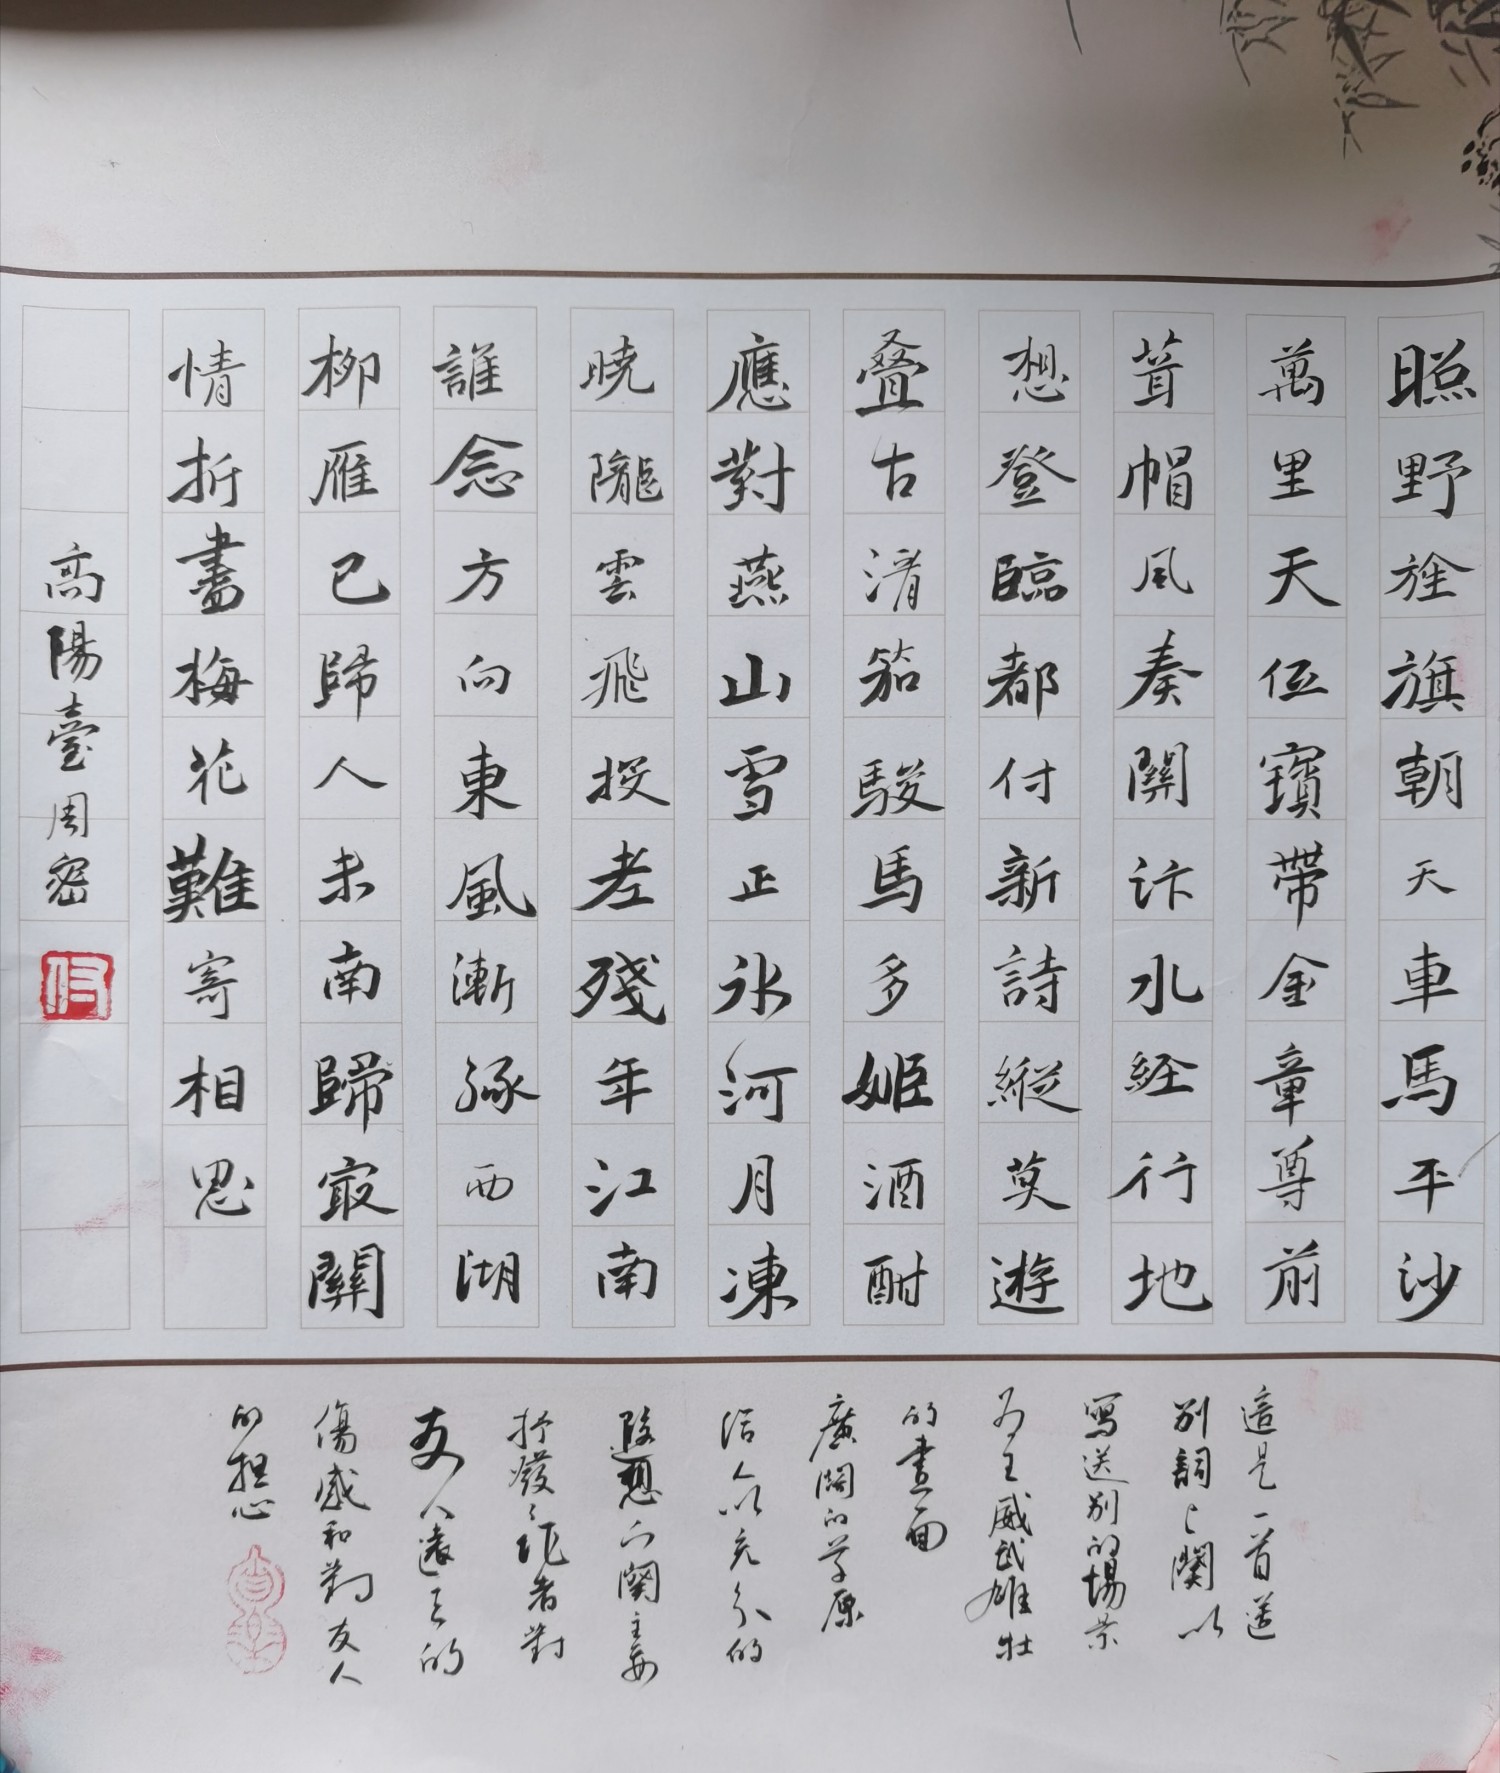 照野旌旗朝天車馬平沙
萬里天低寶帶金章尊前
茸帽风奏關汴水経行地
想登臨都付新詩縱莫遊
叠古清笳駿馬多姬酒酣
應對燕山雪正氷河月凍
曉隴雲飛投老殘年江南
誰念方向東風漸綠西湖
柳雁已歸人未南歸最關
情折盡梅花難寄相思
高陽臺周密
這是一首送
別詞上闋以
寫送別的場景
為主威武雄壯
的畫面
廣闊的草原
給人以充分的
遐想下闋主要
抒發了作者對
友人遠去的
傷感和對友人
的担心